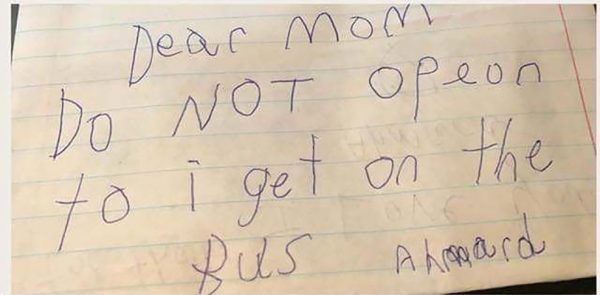 Dear MOM
DO NOT opeon
to i get on the
BUS Ahmard